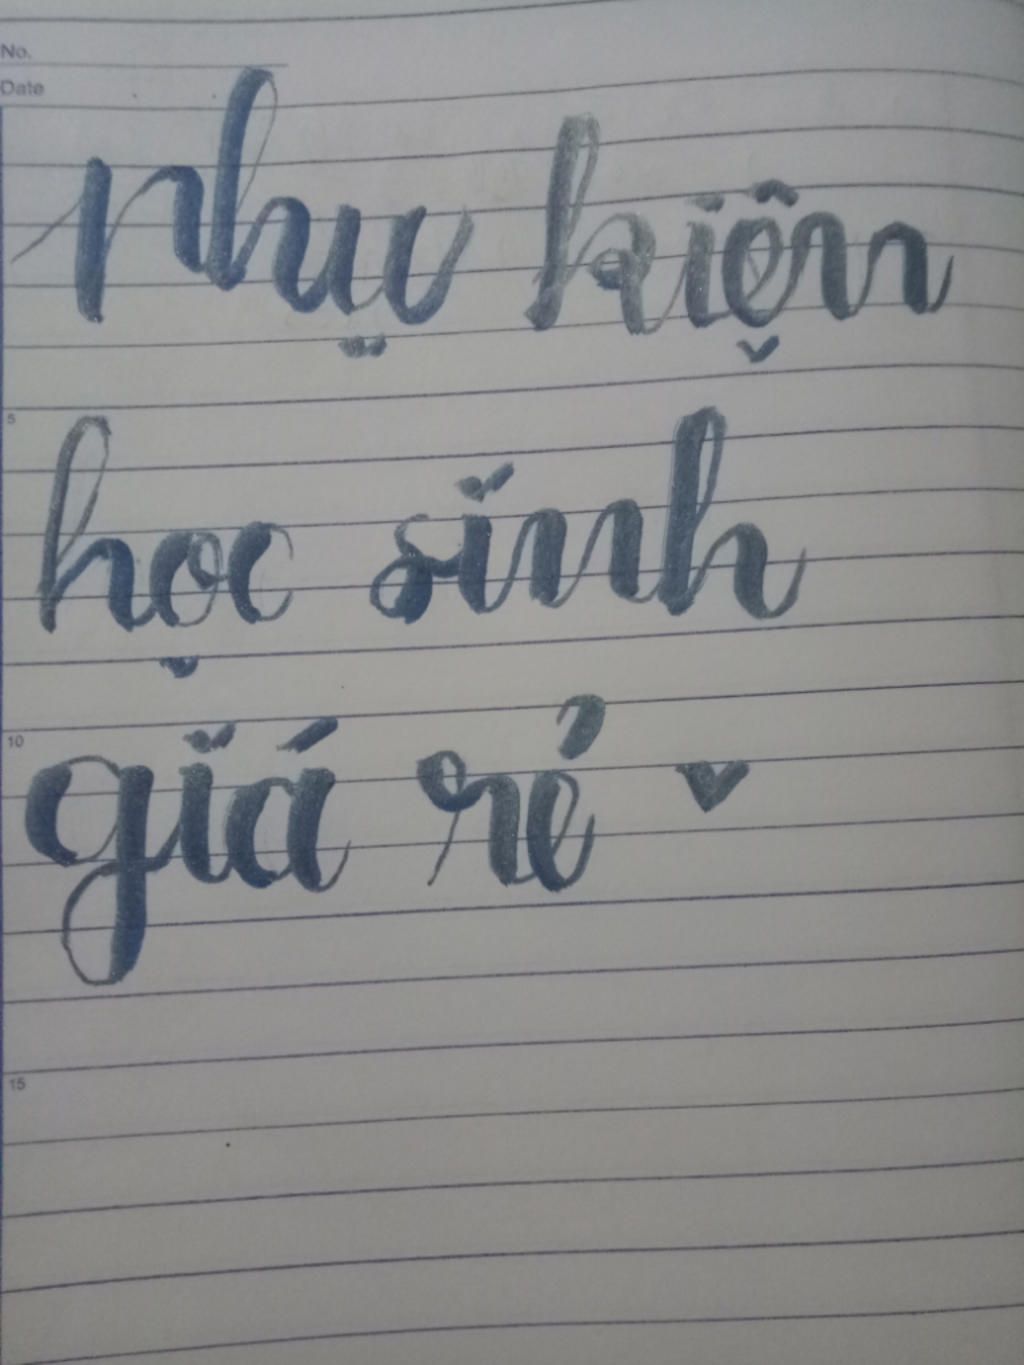 No.
Date
nhụ kiện
5
học sinh
10
giá rẻ
15